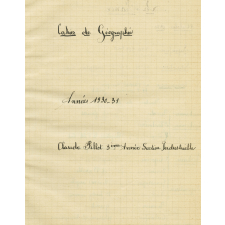 Cahier de Géographie
Année 1930-31
Claude Billot 3ème Année Section Industrielle